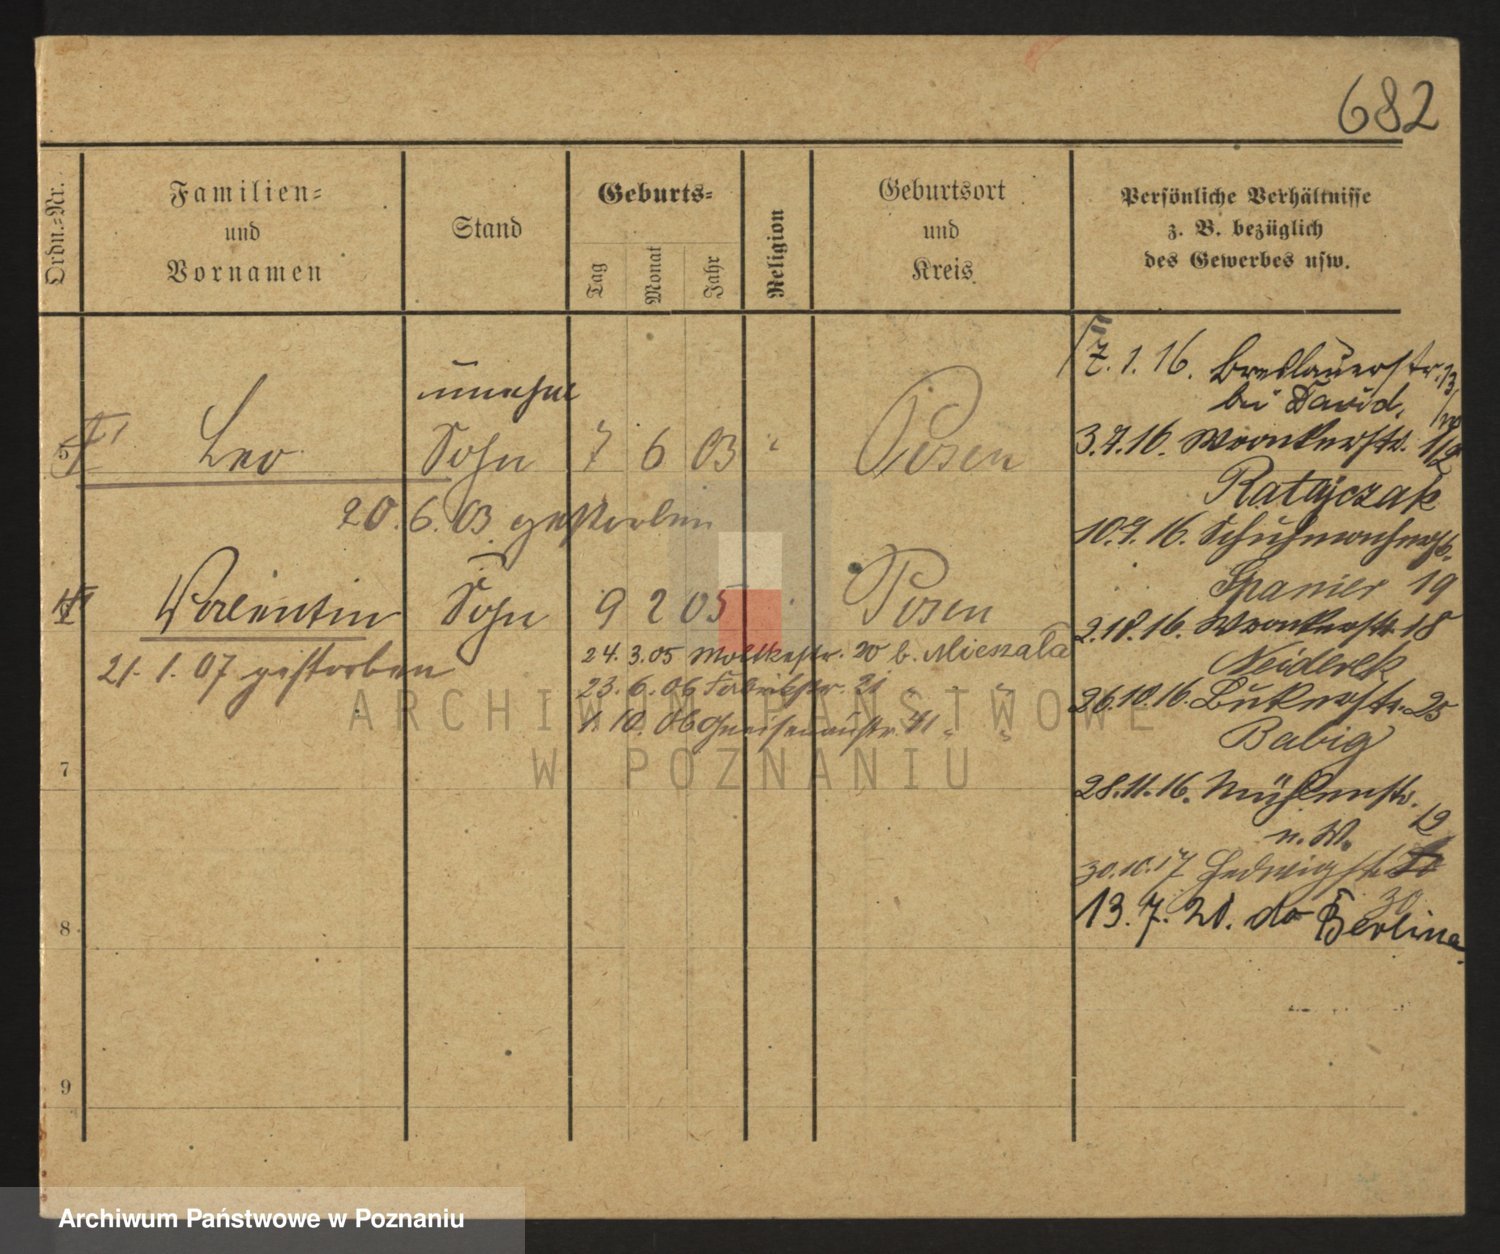 682
Ordn.-Nr.
Familien-
und
Vornamen
Stand
Geburts-
Tag
Monat
Jahr
Religion
Geburtsort
und
Kreis
Persönliche Verhältnisse
z. B. bezüglich
des Gewerbes usw.
unehel
5 Leo Sohn 7 6 03 " Posen
20. 6. 03 gestorben
Valentin Sohn 9 2 05 Posen
21. 1. 07 gestorben
24. 3. 05 Moltkestr. 20 b. Mieszala
23. 6. 06 Fabrikstr. 21 " "
1. 10. 06 Gneisenaustr. 11 " "
7
8
9
7. 1. 16. Breslauerstr. 13
bei David,
3.7.16. Wronkerstr. 1/2
Ratajczak
10.9.16. Schuhmacherstr.
Spanier 19
2.10.16. Wronkerstr. 18
26.10.16. 25
Babig
28.11.16. Mühlenstr.
12
n. W.
30.10.17 Hedwigstr.
30
13. 7. 21. do Berlina.
ARCHIWUM PAŃSTWOWE
W POZNANIU
Archiwum Państwowe w Poznaniu